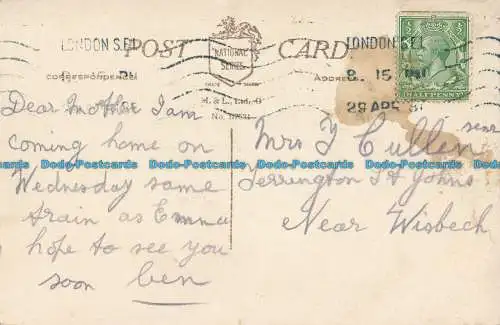 LONDON S.E.1
POST CARD
NATIONAL
SERIES
LONDON S.E.1
8. 15 PM
29 APR
HALFPENNY
CORRESPONDENCE
ADDRESS
TRADE MARK
M. & L., Ltd.
No.
Dear Mother I am
coming home on
Wednesday same
train as Emma
hope to see you
soon Ben
Mrs J Cullen senr
Terrington St Johns
Near Wisbech
Dodo-Postcards Dodo-Postcards Dodo-Postcards Dodo-Postcards